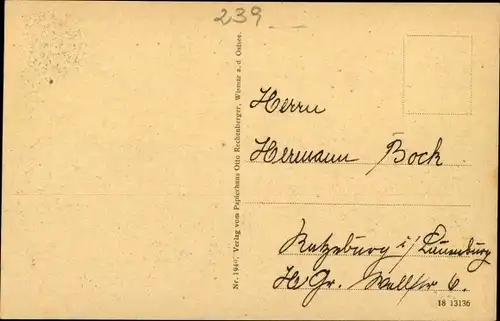 239
Nr. 1940, Verlag vom Papierhaus Otto Rechenberger, Wismar a. d. Ostsee.
Herrn
Hermann Bock
Ratzeburg i/ Lauenburg
Gr. Wallstr 6.
18 13136